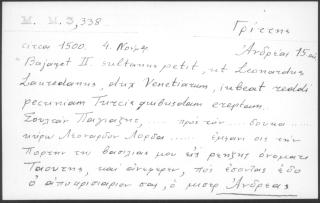 M. M. 3, 338
Γρίττης
circa 1500. 4. Νοέμβρ. Ἀνδρέας 15
"Bajazet II. sultanus petit, ut Leonardus
Lauredanus, dux Venetiarum, iubeat reddi
pecuniam Turcis quibusdam ereptam.
Σουλτὰν Παγιαζήτ, ..... πρὸς τὸν ..... δουκα .....
κύριω Λεονάρδον Λορδα ..... ἐμήνυσι οις την
Πόρτην της βασιλιας μου εἰς
και ἀνεφερεν, πῶς ἐσοντας ἐδο
ὁ ἀποκρισιαριον σας, ὁ μισερ Ἀνδρέας